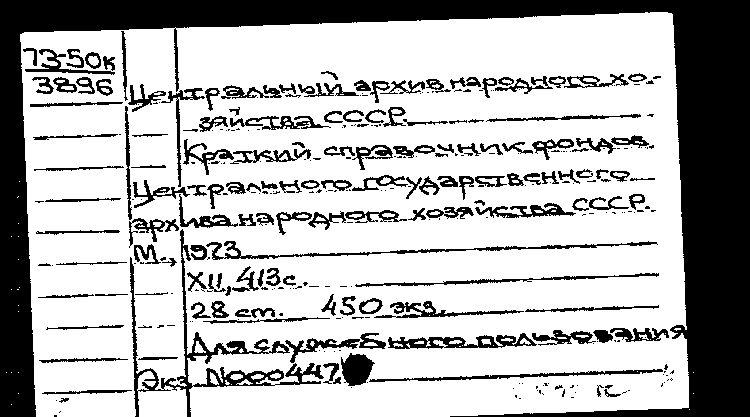 73-50к
3896
Центральный архив народного хо-
зяйства СССР.
Краткий справочник фондов
Центрального государственного
архива народного хозяйства СССР.
М., 1973
XII, 413 с.
28 см. 450 экз.
Для служебного пользования
Экз. N000447.